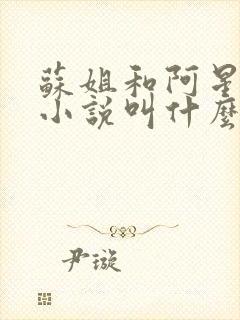 蘇姐和阿星
小說叫什麼
尹璇